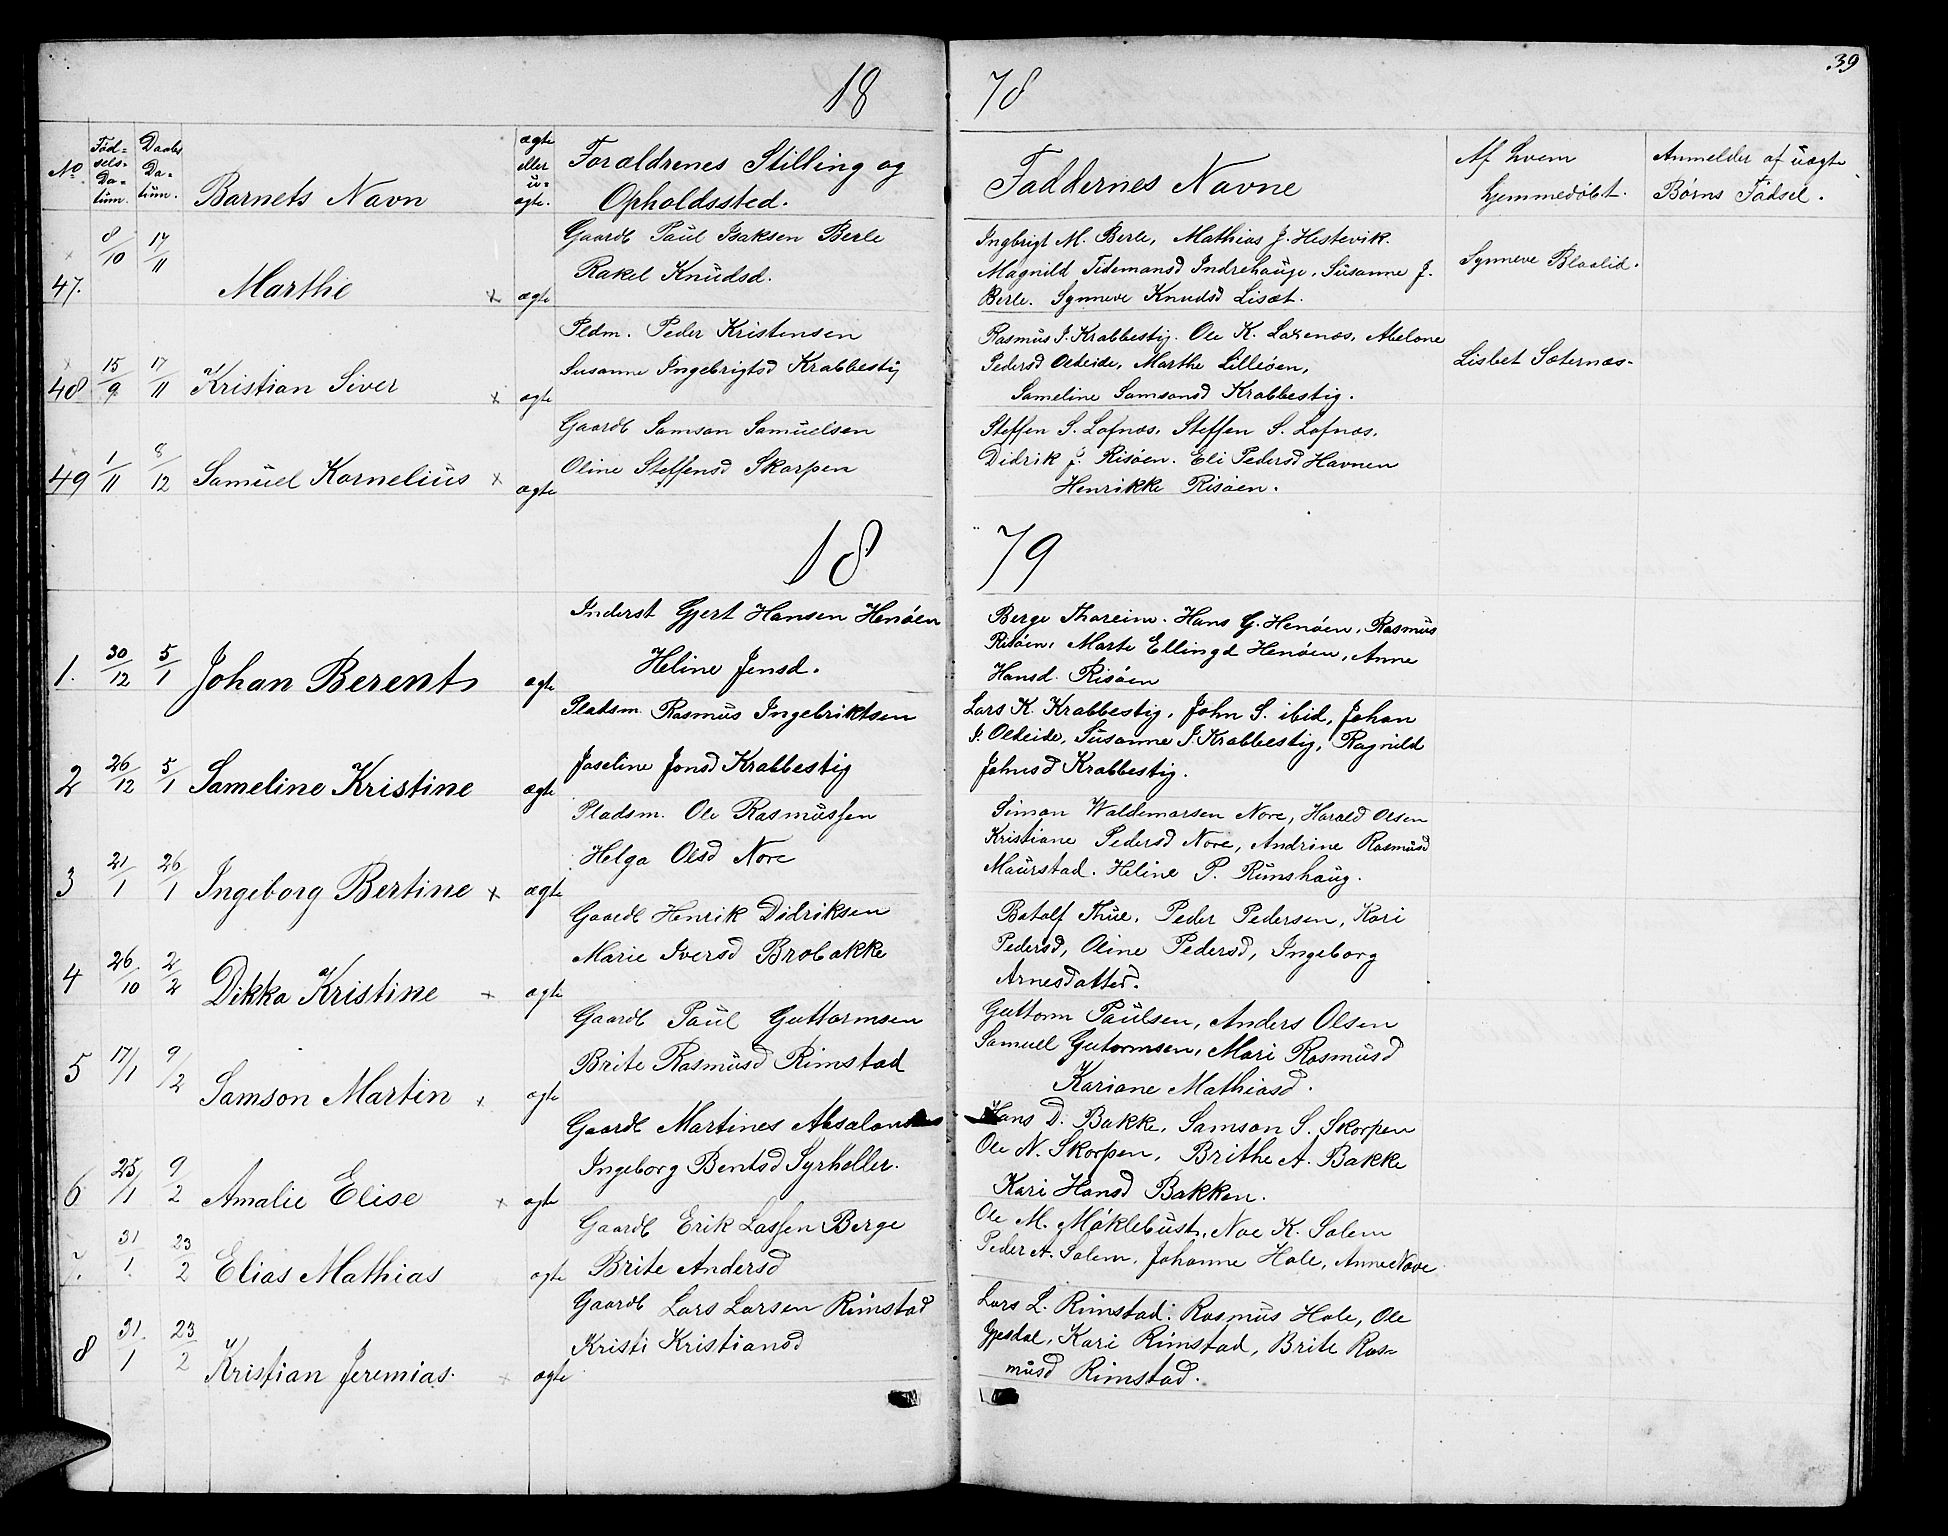 39
18 78
No. Fødselsdatum. Daabs Datum. Barnets Navn ægte eller uægte. Forældrenes Stilling og Opholdssted. Faddernes Navne Af hvem hjemmedøbt. Anmelder af uægte Børns Fødsel.
47. 8/10 17/11 Marthe × ægte
Gaardb Paul Isaksen Berle
Rakel Knudsd.
Ingbrigt M. Berle, Mathias J. Hestevik.
Magnild Tidemansd Indrehauge, Susanne J.
Berle. Synneve Knudsd Lisæt.
Synneve Blaalid.
48 15/9 17/11 Kristian Siver × ægte
Pldm. Peder Kristensen
Susanne Ingebrigtsd Krabbestig
Rasmus I. Krabbestig. Ole K. Laxenæs, Abelone
Pedersd Oldeide, Marthe Lilleøen,
Sameline Samsonsd Krabbestig.
Lisbet Sæternæs-
49 1/11 8/12 Samuel Kornelius × ægte
Gaardb Samson Samuelsen
Oline Steffensd Skorpen
Steffen S. Lofnæs, Steffen S. Lofnæs,
Didrik J. Risøen. Eli Pedersd Havnen
Henrikke Risøen.
18 79
1. 30/12 5/1 Johan Berent ægte
Inderst Gjert Hansen Henøen
Heline Jensd.
Berge Thoreim. Hans G. Henøen, Rasmus
Risøen, Marte Ellingd Henøen, Anne
Hansd. Risøen
2 26/12 5/1 Sameline Kristine ægte
Pladsm. Rasmus Ingebriktsen
Joseline Jonsd Krabbestig
Lars K. Krabbestig, John S. ibid, Johan
I. Oldeide, Susanne I. Krabbestig, Ragnild
Johnsd Krabbestig.
3 21/1 26/1 Ingeborg Bertine × ægte
Pladsm. Ole Rasmussen
Helga Olsd Nore
Simon Waldemarsen Nore, Harald Olsen
Kristiane Pedersd Nore, Andrine Rasmusd
Maurstad. Heline P. Rimshaug.
4 26/10 2/2 Dikka Kristine × ægte
Gaardb Henrik Didriksen
Marie Iversd Brobakke
Botolf Thue, Peder Pedersen, Kari
Pedersd, Oline Pedersd, Ingeborg
Arnesdatter.
5 17/1 9/2 Samson Martin × ægte
Gaardb Paul Guttormsen
Brite Rasmusd Rimstad
Guttorm Paulsen, Anders Olsen
Samuel Gutormsen, Mari Rasmusd
Kariane Mathiasd.
6 25/1 9/2 Amalie Elise × ægte
Gaardb Martines Absalonsen
Ingeborg Bentsd Syrheller.
Hans D. Bakke, Samson S. Skorpen
Ole N. Skorpen, Brithe A. Bakke
Kari Hansd Bakken.
7. 31/1. 23/2 Elias Mathias ægte
Gaardb Erik Lassen Berge
Brite Andersd
Ole M. Møklebust, Noe K. Solem
Peder A. Solem, Johanne Hole, Anne Nave
8 31/1 23/2 Kristian Jeremias. × ægte
Gaardb Lars Larsen Rimstad
Kristi Kristiansd
Lars L. Rimstad. Rasmus Hole, Ole
Gjesdal, Kari Rimstad, Brite Ras-
musd Rimstad.